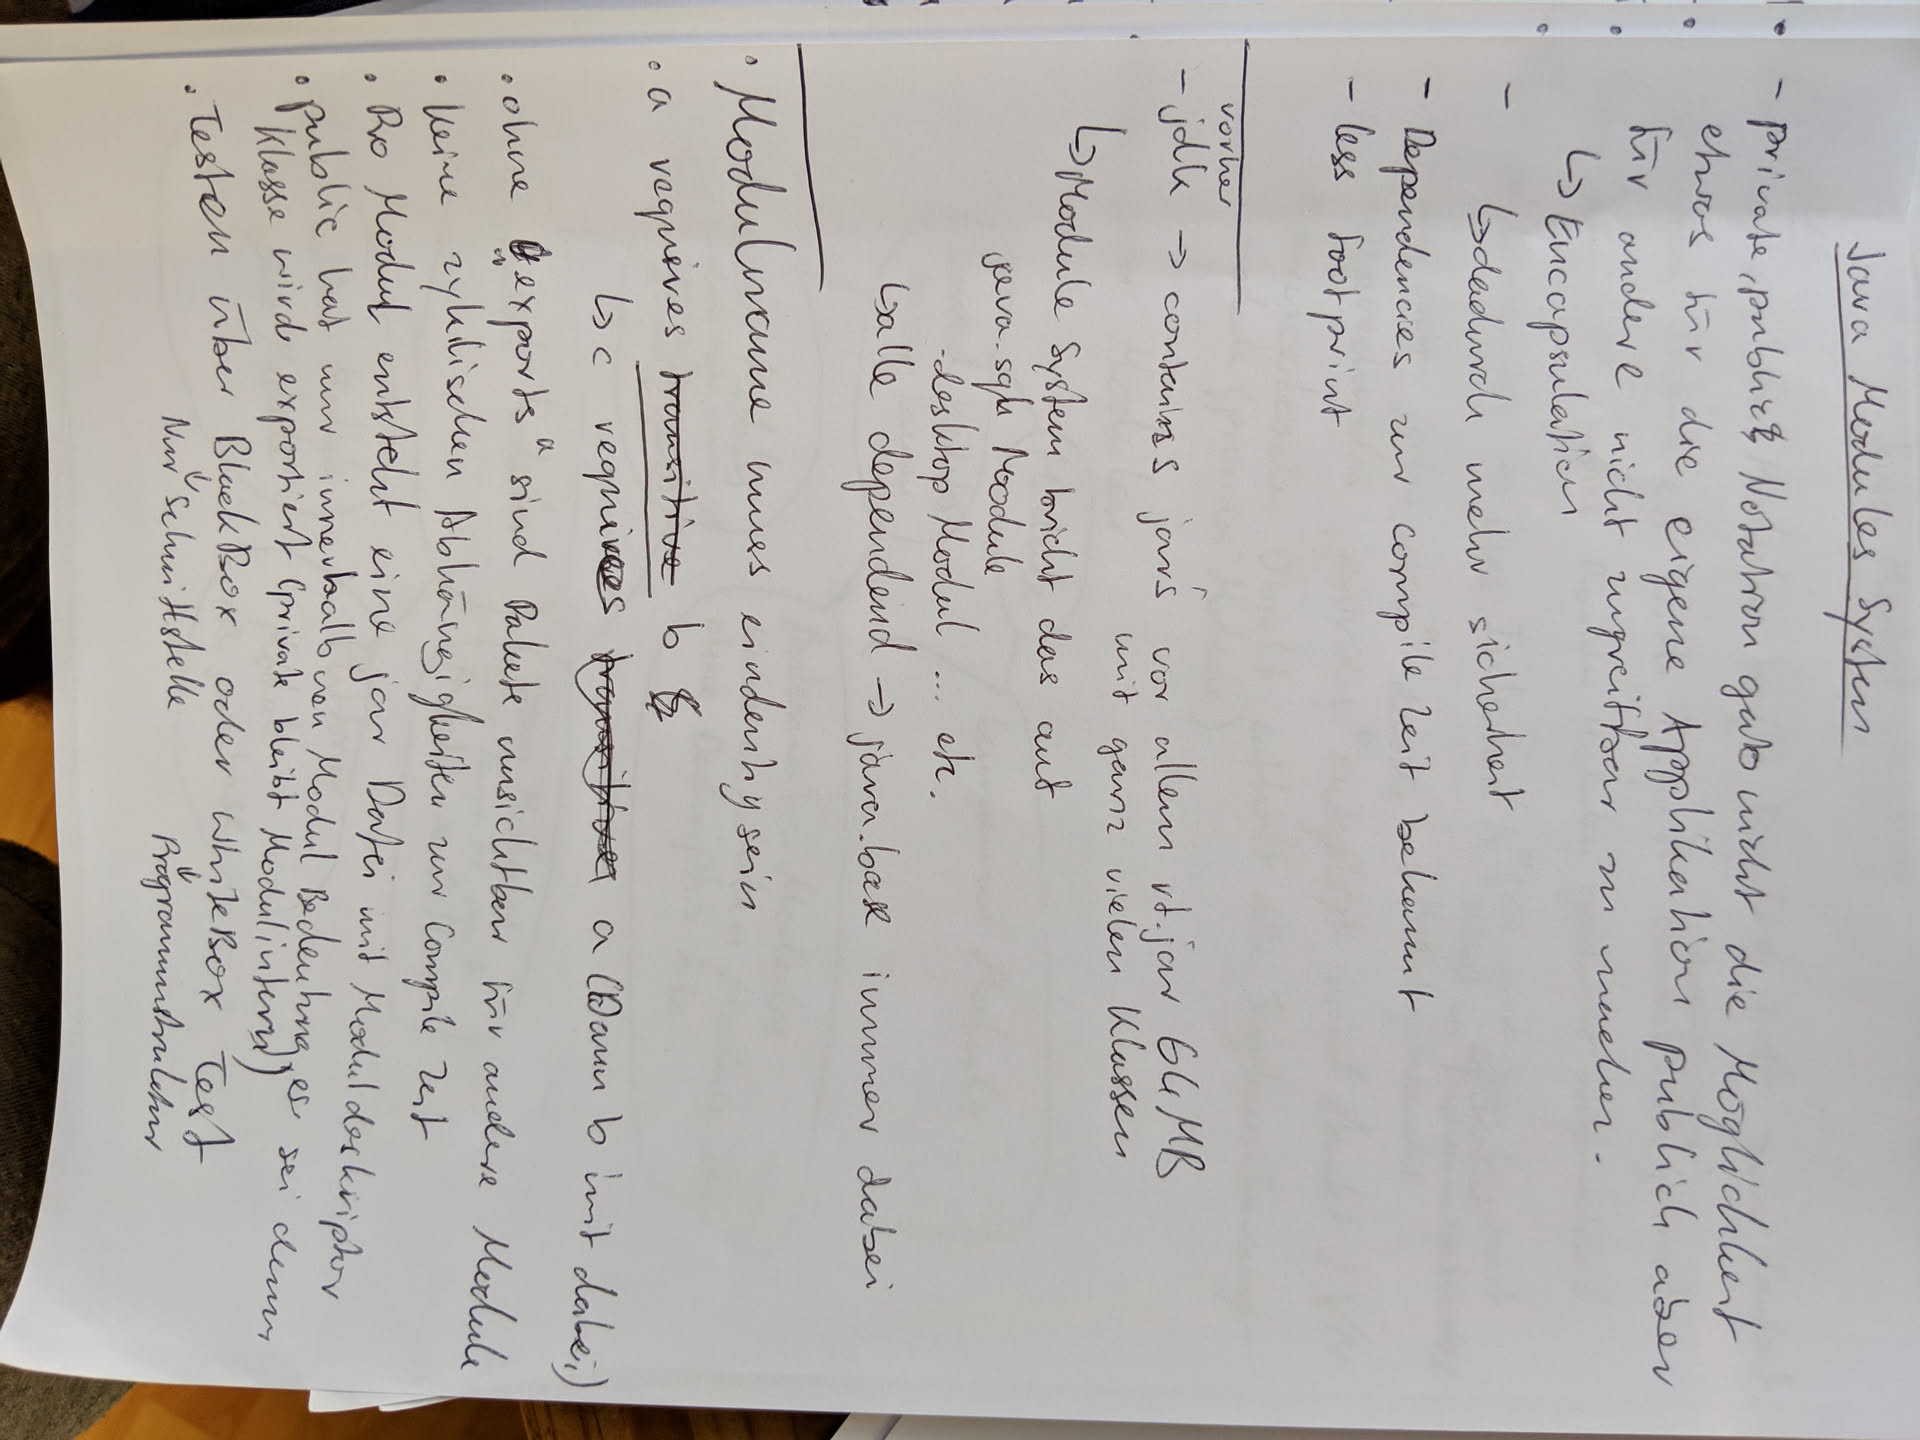 Java Modules System
- private, public Notation gab nicht die Möglichkeit
etwas für die eigene Applikation publich aber
für andere nicht zugreifbar zu machen.
↳ Encapsulation
- ↳ dadurch mehr sicherheit
- Dependencies zur compile zeit bekannt
- less footprint
vorher
- jdk → contains jars vor allem rt.jar 64MB
mit ganz vielen Klassen
↳ Module System bricht das auf
java.sql Module
-desktop Modul ... etc.
↳ alle dependend → java.base immer dabei
• Modulname muss eindeutig sein
• a requires transitive b
↳ c requires transitive a (Dann b mit dabei)
• ohne "exports" sind Pakete unsichtbar für andere Module
• keine zyklischen Abhängigkeiten zur Compile zeit
• Pro Modul entsteht eine jar Datei mit Moduldeskriptor
• Public hat nur innerhalb von Modul Bedeutung, es sei denn
Klasse wird exportiert (private bleibt Modulintern)
• Testen über BlackBox oder WhiteBox Test
Nur Schnittstelle Programmstruktur